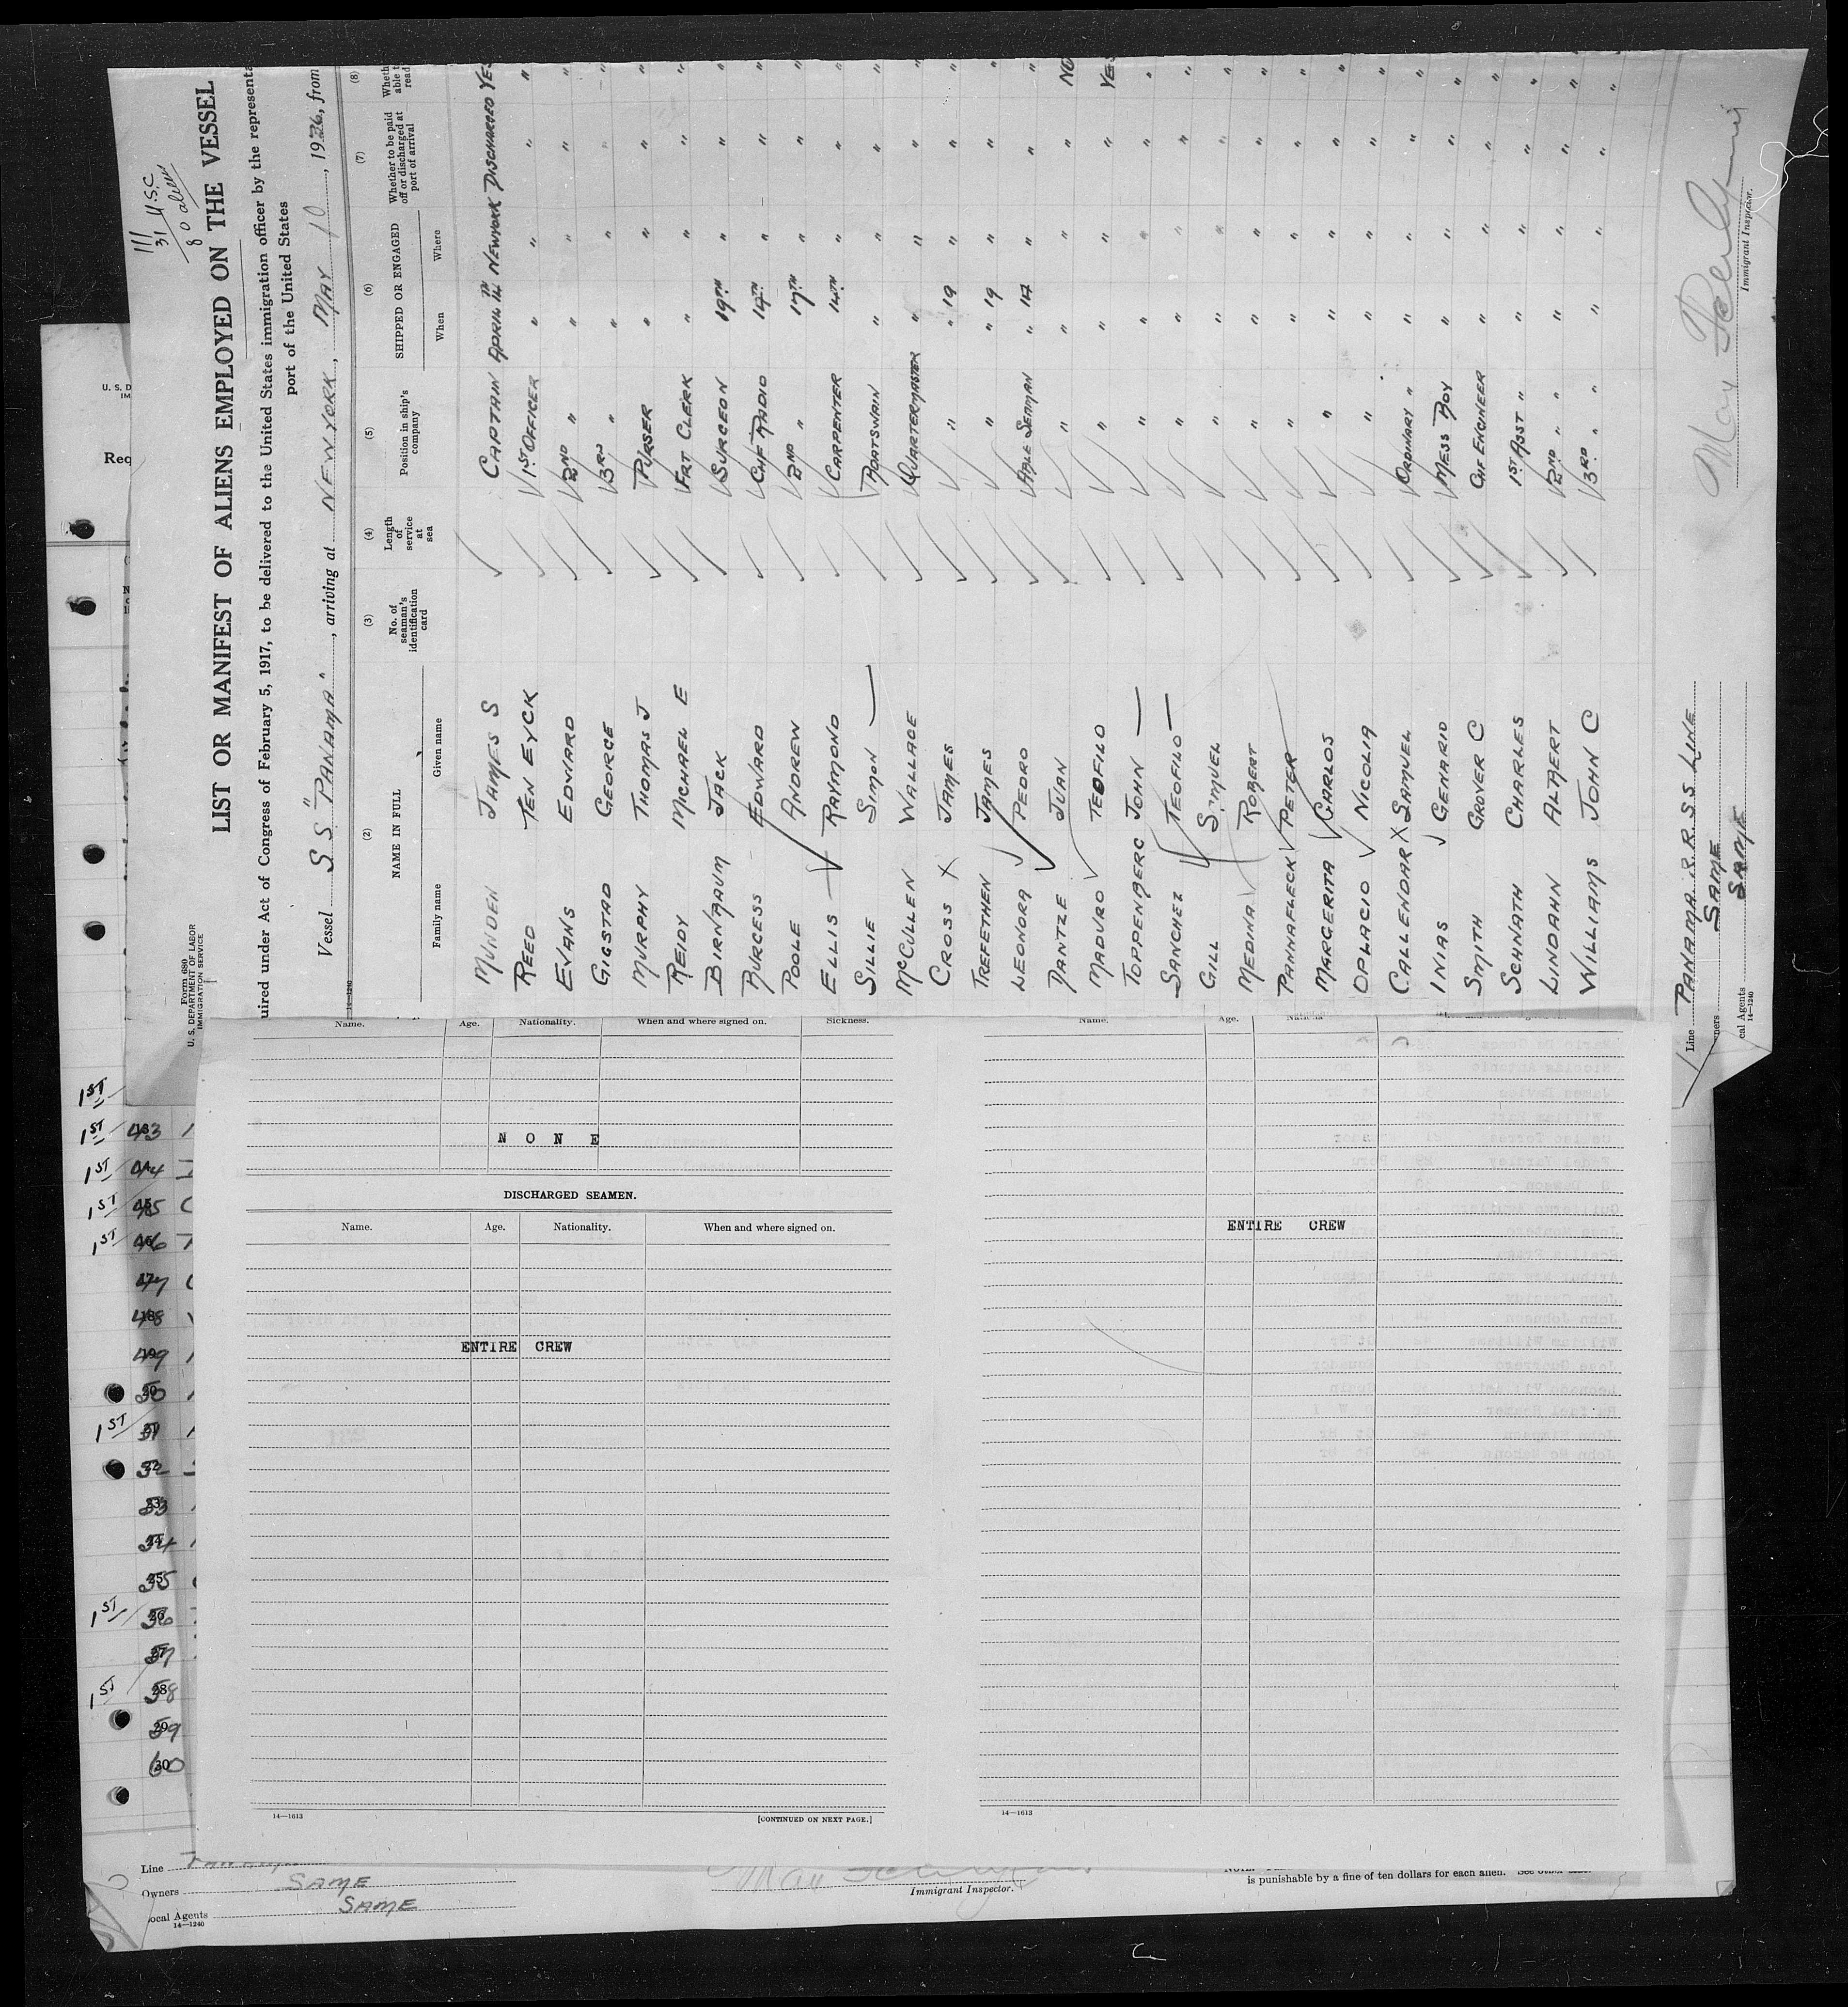 111
31 U.S.C
80 aliens
Form 680
U. S. DEPARTMENT OF LABOR
IMMIGRATION SERVICE
LIST OR MANIFEST OF ALIENS EMPLOYED ON THE VESSEL
uired under Act of Congress of February 5, 1917, to be delivered to the United States immigration officer by the representa
port of the United States
Vessel S S "PANAMA", arriving at NEW YORK, MAY 10, 1926, from
14—1240
(2) (3) (4) (5) (6) (7) (8)
NAME IN FULL
Family name Given name
No. of seaman's identification card
Length of service at sea
Position in ship's company
SHIPPED OR ENGAGED
When Where
Whether to be paid off or discharged at port of arrival
Wheth able t read
MUNDEN JAMES S CAPTAIN APRIL 14TH NEWYORK DISCHARGED YES
REED TEN EYCK 1ST OFFICER " " " "
EVANS EDWARD 2ND " " " " "
GIGSTAD GEORGE 3RD " " " " "
MURPHY THOMAS J PURSER " " " "
REIDY MICHAEL E FRT CLERK " " " "
BIRNBAUM JACK SURGEON 19TH " " "
BURGESS EDWARD CHF RADIO 19TH " " "
POOLE ANDREW 2ND " 17TH " " "
ELLIS RAYMOND CARPENTER 14TH " " "
SILLIE SIMON BOATSWAIN " " " "
McCULLEN WALLACE QUARTERMASTER " " " "
CROSS X JAMES " " 19 " " "
TREFETHEN JAMES " " 19 " " "
LEONORA PEDRO ABLE SEAMAN " 14 " " "
DANTZE JUAN " " " " NO
MADURO TEOFILO " " " " YES
TOPPENBERG JOHN " " " " "
SANCHEZ TEOFILO " " " " "
GILL SAMUEL " " " " "
MEDINA ROBERT " " " " "
PANNAFLECK PETER " " " " "
MARGERITA CARLOS " " " " "
OPLACIO NICOLIA " " " " "
CALLENDAR X SAMUEL ORDINARY " " " " "
INIAS GENARIO MESS BOY " " " "
SMITH GROVER C CHF ENGINEER " " " "
SCHNATH CHARLES 1ST ASST " " " " "
LINDAHN ALBERT 2ND " " " " " "
WILLIAMS JOHN C 3RD " " " " " "
Line PANAMA R.R. SS LINE
ners SAME
cal Agents SAME
14—1240
Immigrant Inspector.
U. S. D
IM
Req
Name. Age. Nationality. When and where signed on. Sickness.
NONE
DISCHARGED SEAMEN.
Name. Age. Nationality. When and where signed on.
ENTIRE CREW
14—1613
[CONTINUED ON NEXT PAGE.]
Name. Age.
ENTIRE CREW
14—1613
1ST
1ST 43
1ST 44
1ST 45
1ST 46
47
48
49
50
1ST 51
52
53
54
55
1ST 56
57
1ST 58
59
60
Line
Owners SAME
ocal Agents SAME
14—1240
Immigrant Inspector.
is punishable by a fine of ten dollars for each alien.